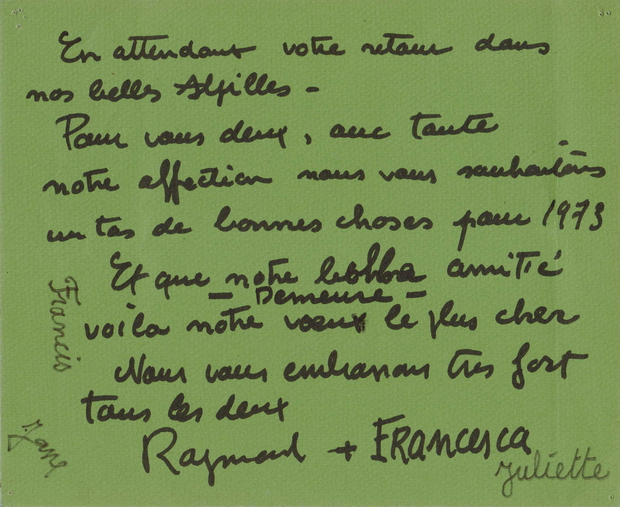 En attendant votre retour dans
nos belles Alpilles -
Pour vous deux, avec toute
notre affection nous vous souhaitons
un tas de bonnes choses pour 1973
Et que notre amitié
- Demeure -
voila notre voeux le plus cher
Nous vous embrassons très fort
tous les deux
Raymond + FRANCESCA
Francis
Juliette